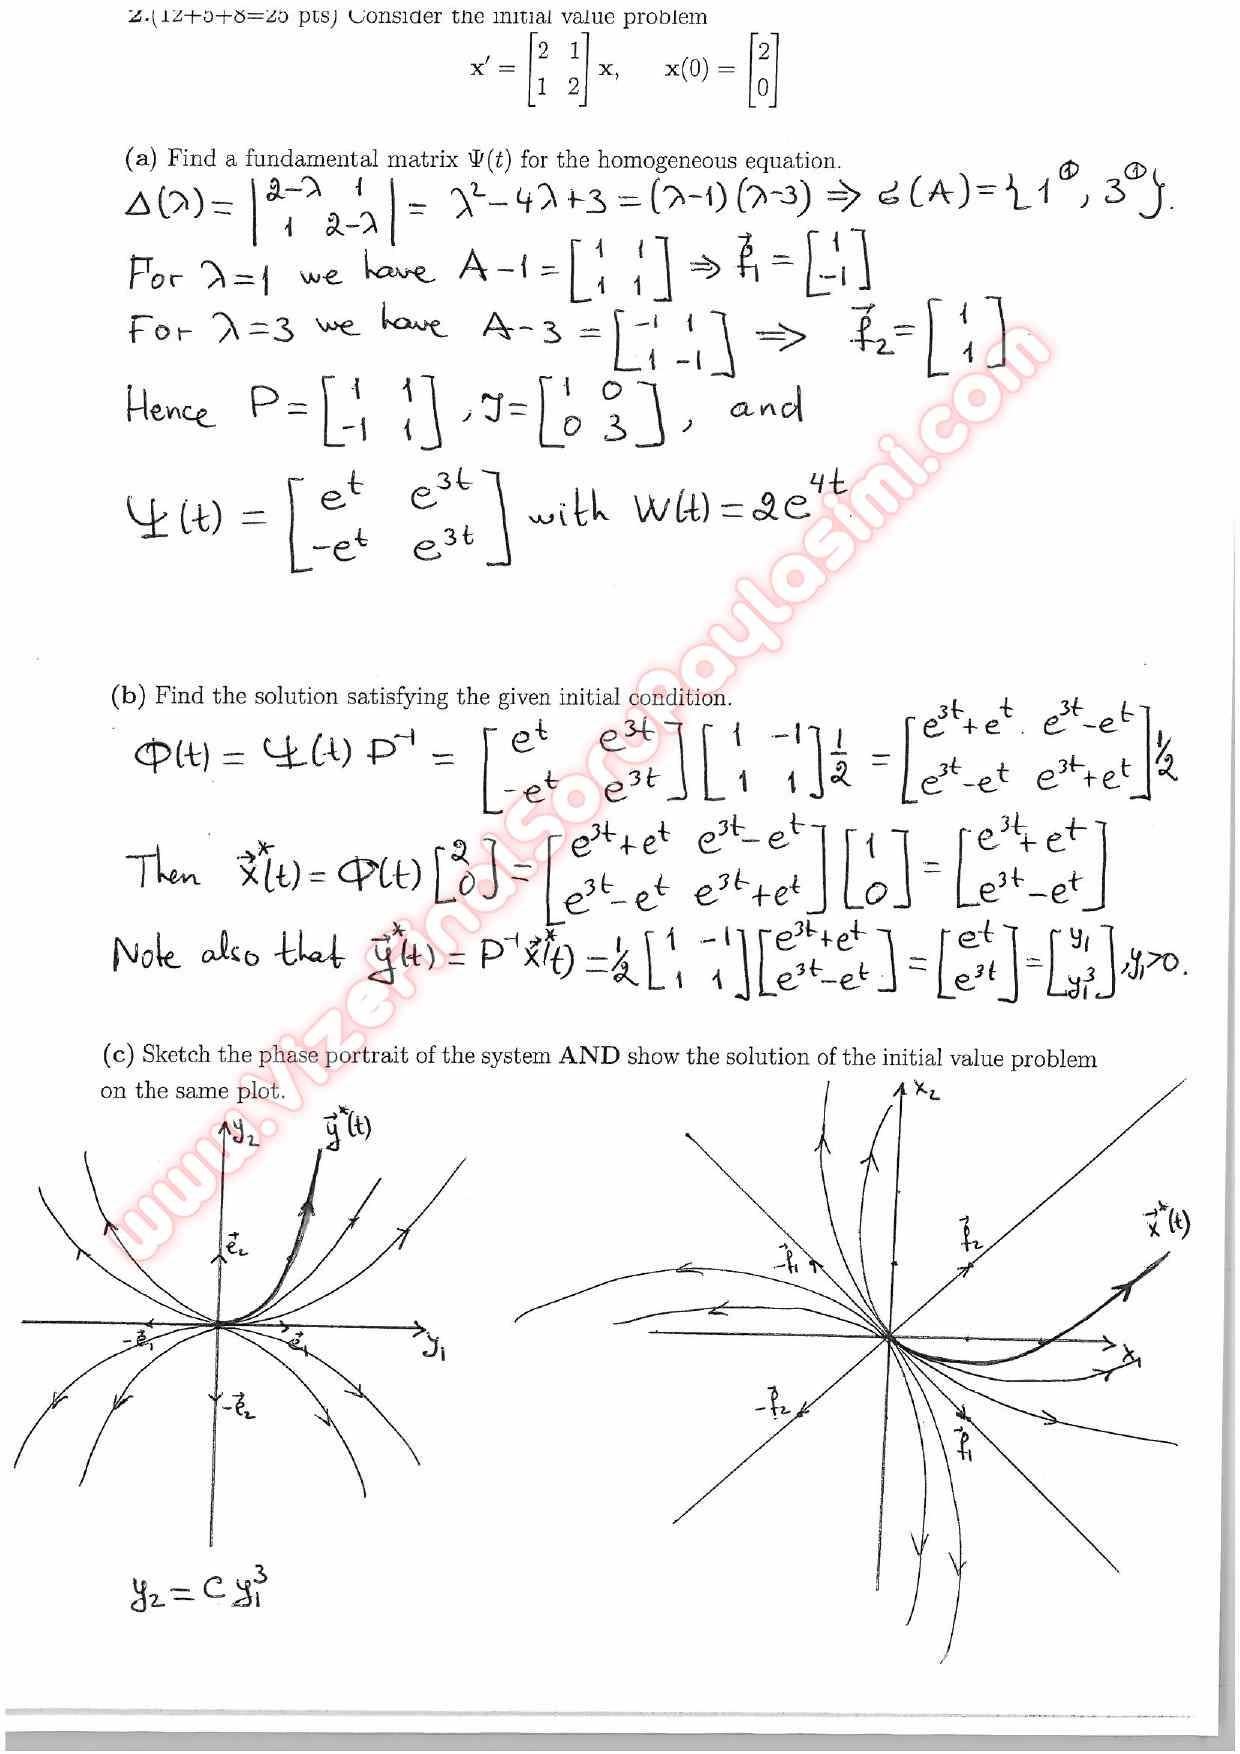 2.(12+5+8=25 pts) Consider the initial value problem
x′ = [2 1; 1 2] x, x(0) = [2; 0]
(a) Find a fundamental matrix Ψ(t) for the homogeneous equation.
Δ(λ) = |2-λ 1; 1 2-λ| = λ²-4λ+3 = (λ-1)(λ-3) ⇒ σ(A) = {1^①, 3^①}.
For λ=1 we have A-1 = [1 1; 1 1] ⇒ f⃗₁ = [1; -1]
For λ=3 we have A-3 = [-1 1; 1 -1] ⇒ f⃗₂ = [1; 1]
Hence P = [1 1; -1 1], J = [1 0; 0 3], and
Ψ(t) = [e^t e^3t; -e^t e^3t] with W(t) = 2e^4t
(b) Find the solution satisfying the given initial condition.
Φ(t) = Ψ(t) P⁻¹ = [e^t e^3t; -e^t e^3t] [1 -1; 1 1] 1/2 = [e^3t+e^t e^3t-e^t; e^3t-e^t e^3t+e^t] 1/2
Then x⃗*(t) = Φ(t) [2; 0] = [e^3t+e^t e^3t-e^t; e^3t-e^t e^3t+e^t] [1; 0] = [e^3t+e^t; e^3t-e^t]
Note also that y⃗*(t) = P⁻¹x⃗*(t) = 1/2 [1 -1; 1 1] [e^3t+e^t; e^3t-e^t] = [e^t; e^3t] = [y₁; y₁³], y₁>0.
(c) Sketch the phase portrait of the system AND show the solution of the initial value problem
on the same plot.
y₂ y⃗*(t)
e⃗₂
-e⃗₁ e⃗₁ y₁
-e⃗₂
y₂ = C y₁³
x₂
x⃗*(t)
f⃗₂
-f⃗₁
x₁
-f⃗₂
f⃗₁
www.VizeFinalSoruPaylasimi.com